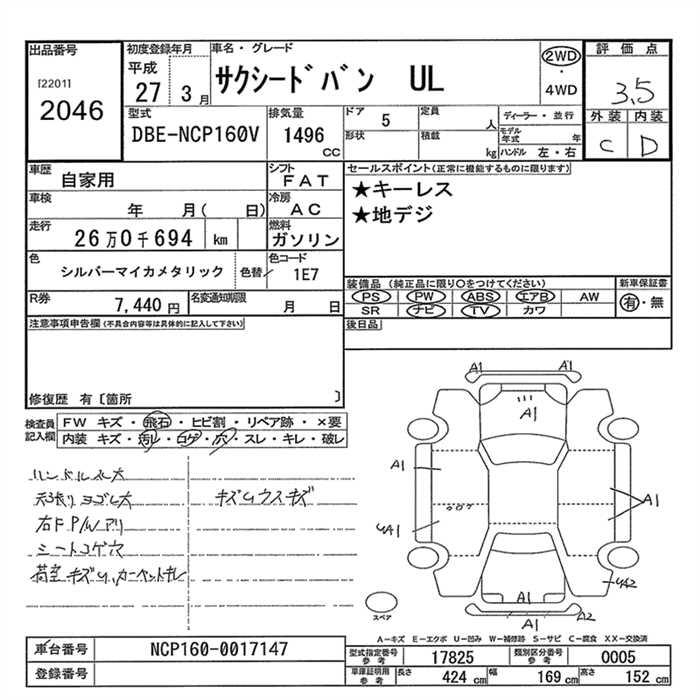 出品番号
[2201]
2046
初度登録年月
平成
27 3 月
車名・グレード
サクシードバン UL
2WD
・
4WD
評価点
3.5
外装 内装
C D
型式
DBE-NCP160V
排気量
1496
CC
ドア 5
形状
定員 人
積載 kg
ディーラー・並行
モデル年式 年
ハンドル 左・右
車歴
自家用
シフト
FAT
車検
年 月( 日)
冷房
AC
走行
26万0千694 km
燃料
ガソリン
色
シルバーマイカメタリック
色替
色コード
1E7
R券
7,440 円
名変通知期限
月 日
セールスポイント(正常に機能するものに限ります)
★キーレス
★地デジ
装備品 (純正品に限り〇をつけてください)
PS PW ABS エアB AW
SR ナビ TV カワ
新車保証書
有・無
後日品
注意事項申告欄(不具合内容等は具体的に記入して下さい)
修復歴 有〔箇所 〕
検査員
記入欄
FW キズ・飛石・ヒビ割・リペア跡・×要
内装 キズ・汚レ・コゲ・穴・スレ・キレ・破レ
ハンドルスレ大
天張り ヨゴレ大
キズ ウスキズ
右F P/W アリ
シートコゲ穴
荷室キズ カーペットキレ
A1
A1
A1
A1
A1
A1
A1
A1
A2
スペア
A-キズ E-エクボ U-凹み W-補修跡 S-サビ C-腐食 XX-交換済
車台番号
NCP160-0017147
登録番号
型式指定番号
参考
17825
類別区分番号
参考
0005
車庫証明用
参考
長さ
424 cm
幅
169 cm
高さ
152 cm